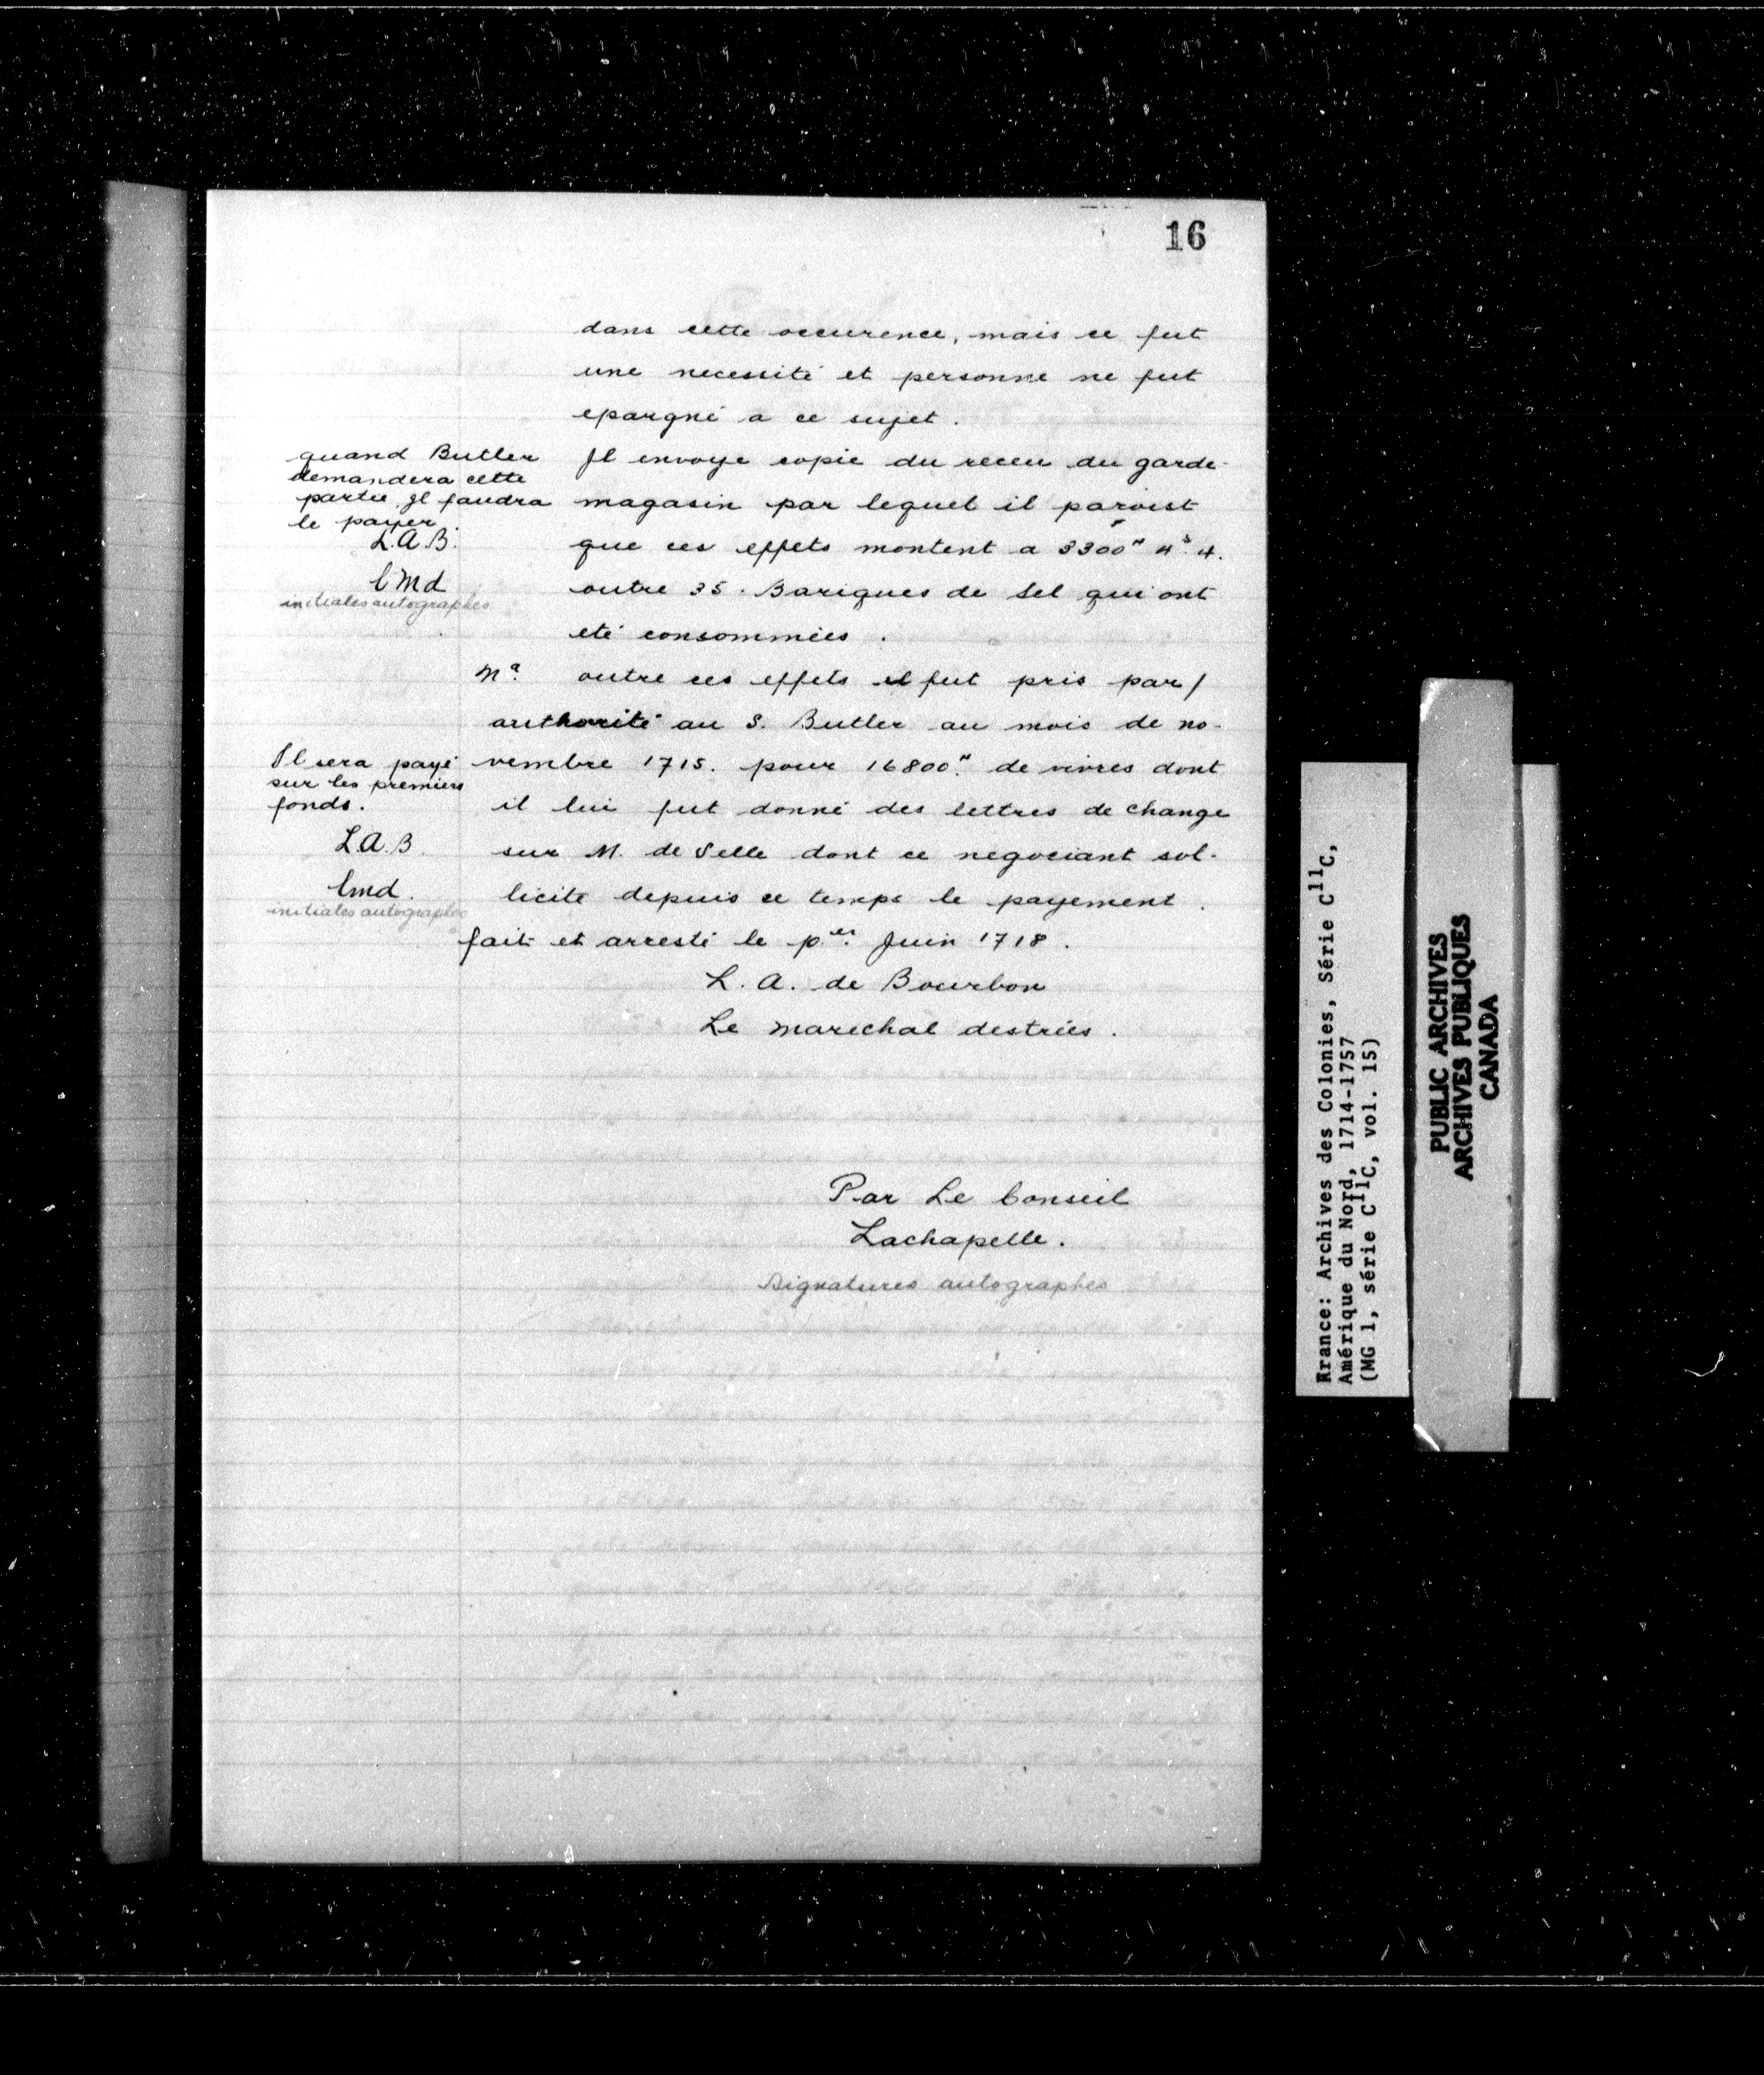 16
dans cette occurence, mais ce fut
une necessité et personne ne fut
epargné a ce sujet.
quand Butler
demandera cette
partie, Jl faudra
le payer.
L.A.B.
C Md
initiales autographes
Jl envoye copie du receu du garde-
magasin par lequel il paroist
que ces effets montent a 3300" 4s. 4.
outre 35. Bariques de Sel qui ont
eté consommées.
Na. outre ces effets il fut pris par/
authorité au S. Butler au mois de no-
vembre 1715. pour 16800." de vivres dont
il lui fut donné des lettres de change
sur M. de Selle dont ce negociant sol-
licite depuis ce temps le payement.
Il sera payé
sur les premiers
fonds.
L.A.B.
Cmd.
initiales autographes
fait et arresté le per. Juin 1718.
L. A. de Bourbon
Le marechal destrées.
Par Le Conseil
Lachapelle.
Signatures autographes
France: Archives des Colonies, Série C11C,
Amérique du Nord, 1714-1757
(MG 1, série C11C, vol. 15)
PUBLIC ARCHIVES
ARCHIVES PUBLIQUES
CANADA